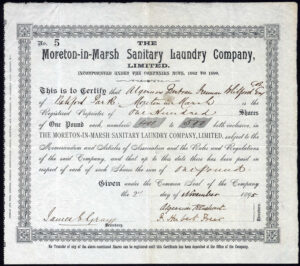 No. 5
THE
Moreton-in-Marsh Sanitary Laundry Company,
LIMITED.
INCORPORATED UNDER THE COMPANIES ACTS, 1862 TO 1890.
This is to Certify that Algernon Freeman
of Batsford Park Moreton in Marsh is the
Registered Proprietor of One Hundred Shares
of One Pound each, numbered to both inclusive, in
THE MORETON-IN-MARSH SANITARY LAUNDRY COMPANY, LIMITED, subject to the
Memorandum and Articles of Association and the Rules and Regulations
of the said Company, and that up to this date there has been paid in
respect of each of such Shares the sum of one pound
Given under the Common Seal of the Company
the 2nd day of November 189
James Gray
Secretary.
Directors
No Transfer of any of the above-mentioned Shares can be registered until this Certificate has been deposited at the Office of the Company.